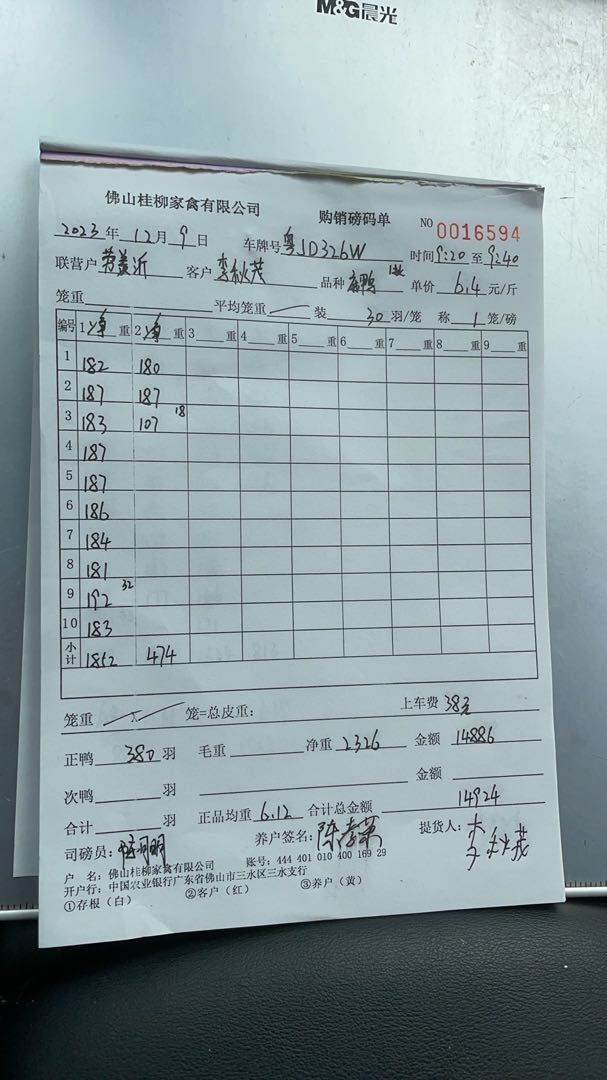 M&G晨光
佛山桂柳家禽有限公司
购销磅码单 NO 0016594
2023 年 12 月 9 日 车牌号 粤JD326W 时间 9:20 至 9:40
联营户 客户 李秋茂 品种 单价 6.4 元/斤
笼重 平均笼重 装 30 羽/笼 称 1 笼/磅
编号 1 净 重 2 净 重 3 重 4 重 5 重 6 重 7 重 8 重 9 重
1 182 180
2 187 187
3 183 107 18
4 187
5 187
6 186
7 184
8 181
9 192 32
10 183
小计 1852 474
笼重 × 笼=总皮重: 上车费 38元
正鸭 380 羽 毛重 净重 2326 金额 14886
次鸭 羽 金额
合计 羽 正品均重 6.12 合计总金额 14924
司磅员: 养户签名: 提货人: 李秋茂
户 名: 佛山桂柳家禽有限公司 账号: 444 401 010 400 169 29
开户行: 中国农业银行广东省佛山市三水区三水支行
①存根（白） ②客户（红） ③养户（黄）